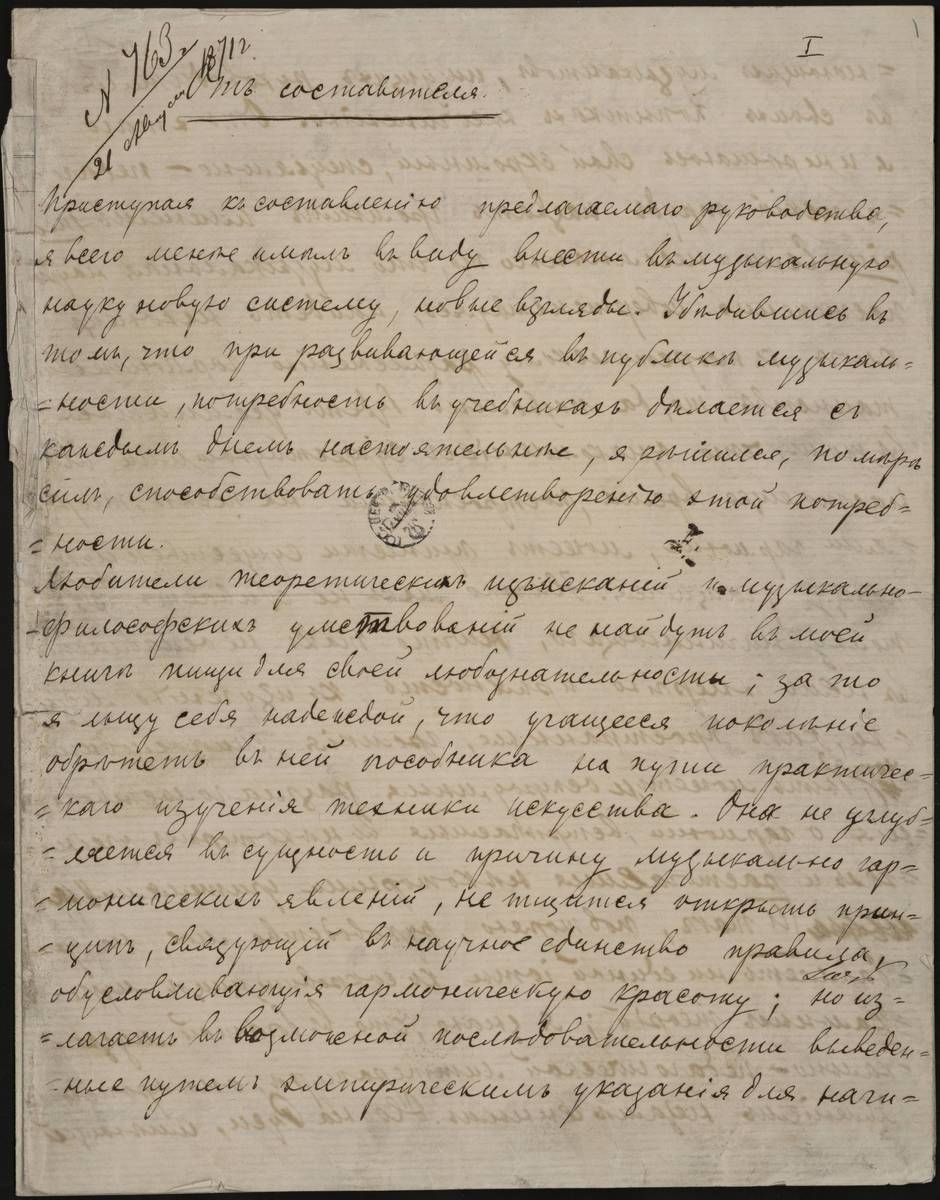 I
N 763
21 Августа 1871 г.
Отъ составителя.
Приступая къ составленію предлагаемаго руководства,
я всего менѣе имѣлъ въ виду внести въ музыкальную
науку новую систему, новые взгляды. Убѣдившись въ
томъ, что при развивающейся въ публикѣ музыкаль=
=ности, потребность въ учебникахъ дѣлается съ
каждымъ днемъ настоятельнѣе, я рѣшился, по мѣрѣ
силъ, способствовать удовлетворенію этой потреб=
=ности.
Любители теоретическихъ изысканій и музыкально-
-философскихъ умствованій не найдутъ въ моей
книгѣ пищи для своей любознательности; за то
я льщу себя надеждой, что учащееся поколѣніе
обрѣтетъ въ ней пособника на пути практичес=
=каго изученія техники искусства. Она не углуб=
=ляется въ сущность и причину музыкально гар=
=моническихъ явленій, не тщится открыть прин=
=ципъ, связующій въ научное единство правила,
обусловливающія гармоническую красоту; но из=
=лагаетъ въ возможной послѣдовательности выведен=
=ные путемъ эмпирическимъ указанія для начи=